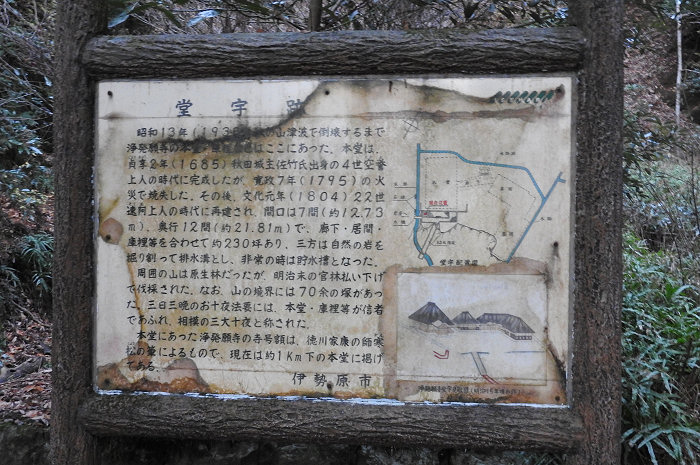 堂宇跡
昭和13年(1938)の山津波で倒壊するまで
浄発願寺の本堂・はここにあった。本堂は、
貞享2年(1685)秋田城主佐竹氏出身の4世空誉
上人の時代に完成したが、寛政7年(1795)の火
災で焼失した。その後、文化元年(1804)22世
上人の時代に再建され、間口は7間(約12.73
m)、奥行12間(約21.81m)で、廊下・居間・
庫裡等を合わせて約230坪あり、三方は自然の岩を
掘り割って排水溝とし、非常の時は貯水槽となった。
周囲の山は原生林だったが、明治末の官林払い下げ
で伐採された。なお、山の境界には70余の塚があっ
た。三日三晩のお十夜法要には、本堂・庫裡等が信者
であふれ、相模の三大十夜と称された。
本堂にあった浄発願寺の寺号額は、徳川家康の師寒
松の筆によるもので、現在は約1Km下の本堂に掲げ
てある。
伊勢原市
堂宇配置図